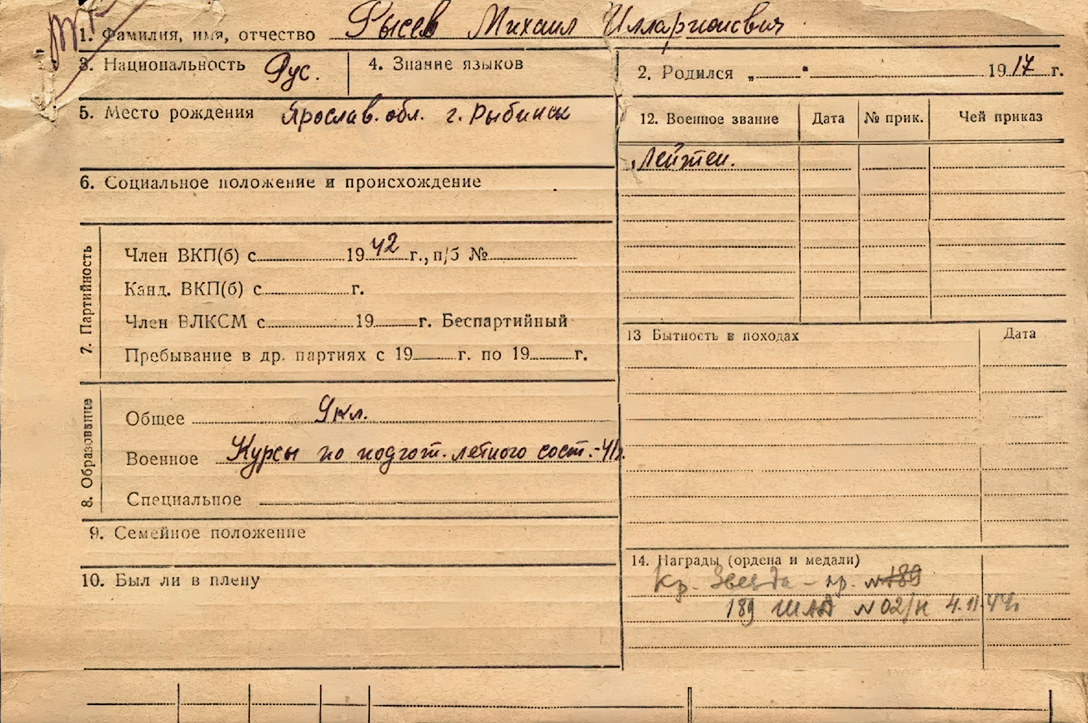 1. Фамилия, имя, отчество Рысев Михаил Илларионович
3. Национальность Рус.
4. Знание языков
2. Родился „ " 1917 г.
5. Место рождения Ярослав. обл. г. Рыбинск
6. Социальное положение и происхождение
7. Партийность
Член ВКП(б) с 1942 г., п/б №
Канд. ВКП(б) с г.
Член ВЛКСМ с 19 г. Беспартийный
Пребывание в др. партиях с 19 г. по 19 г.
8. Образование
Общее 9 кл.
Военное Курсы по подгот. летного сост. - 41г.
Специальное
9. Семейное положение
10. Был ли в плену
12. Военное звание Дата № прик. Чей приказ
Лейтен.
13 Бытность в походах Дата
14. Награды (ордена и медали)
Кр. Звезда - пр. №189
189 ШАД №02/н 4.11.44г.